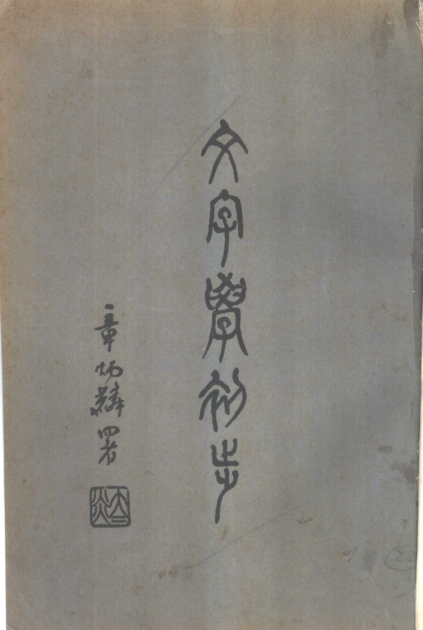 文字學初步
章炳麟署
太炎